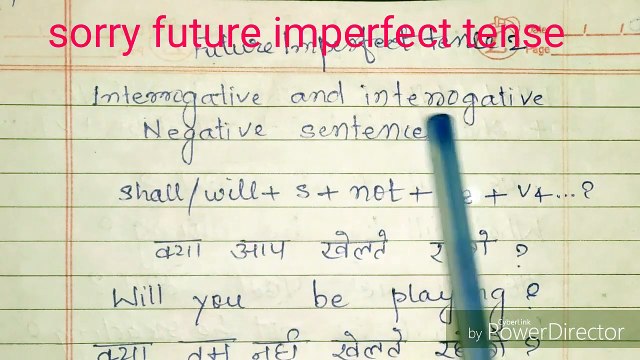 sorry future imperfect tense
Future imperfect tense 2
Page
Interrogative and interrogative
Negative sentence
Shall/will + S + not + + V4...?
क्या आप खेलते रहोगे ?
Will you be playing ?
क्या तुम नहीं खेलते रहोगे ?
CyberLink
by PowerDirector